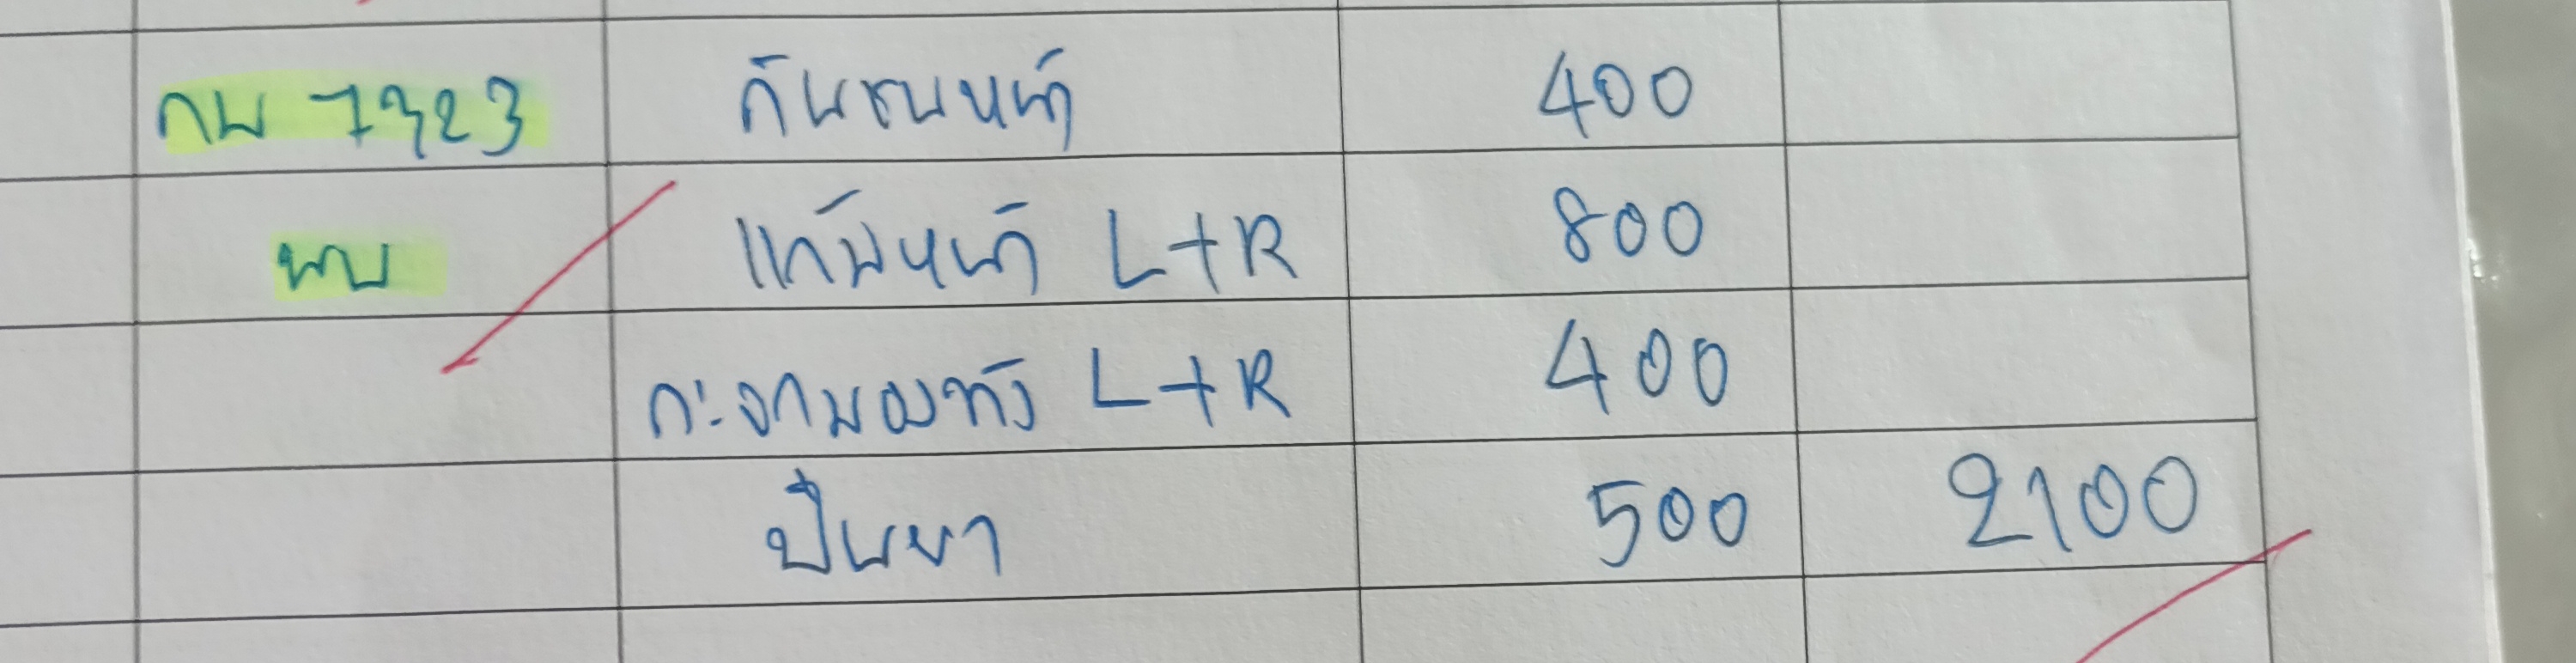 กน 7323 กันชนหน้า 400
พบ แก้มหน้า L+R 800
กะจกมองทัง L+R 400
ปืนยา 500 2100